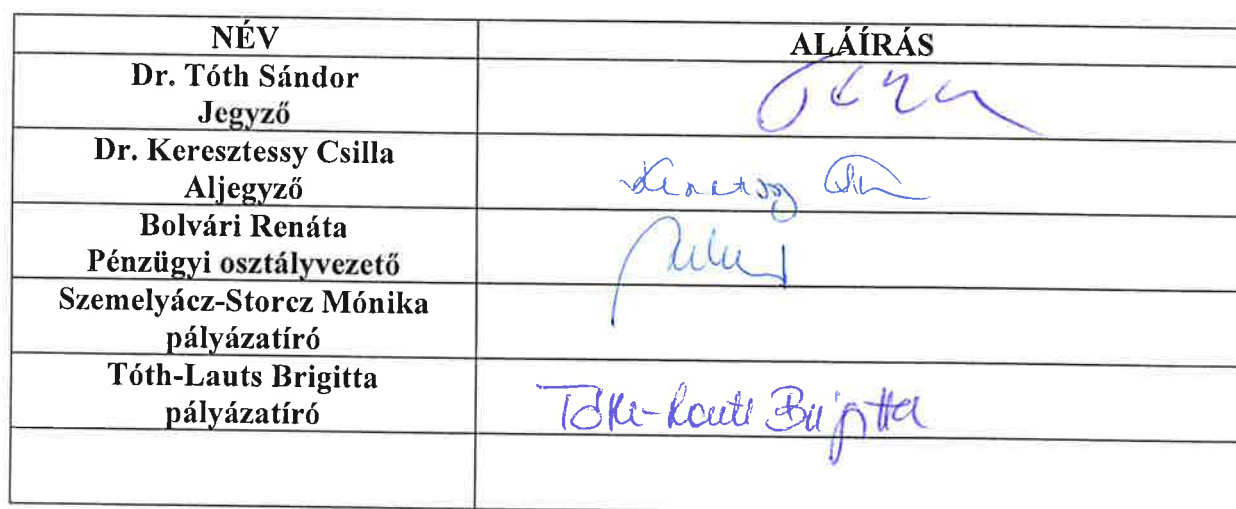 NÉV
ALÁÍRÁS
Dr. Tóth Sándor
Jegyző
Dr. Keresztessy Csilla
Aljegyző
Bolvári Renáta
Pénzügyi osztályvezető
Szemelyácz-Storcz Mónika
pályázatíró
Tóth-Lauts Brigitta
pályázatíró
Tóth-Lauts Brigitta